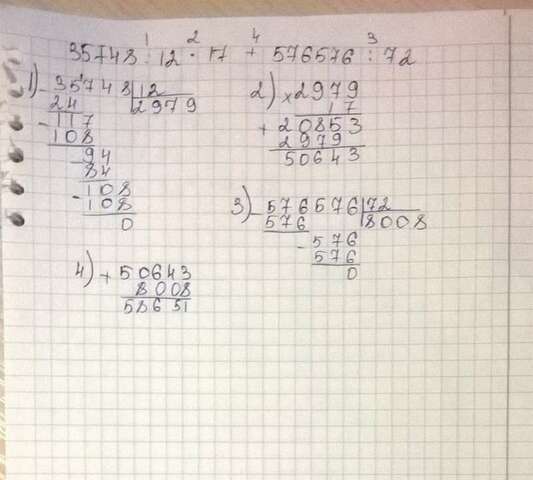 1 2 4 3
35748 : 12 · 17 + 576576 : 72
1) - 35748 | 12
24 2979
- 117
108
- 94
84
- 108
108
0
2) × 2979
17
+ 20853
2979
50643
3) - 576576 | 72
576 8008
- 576
576
0
4) + 50643
8008
58651